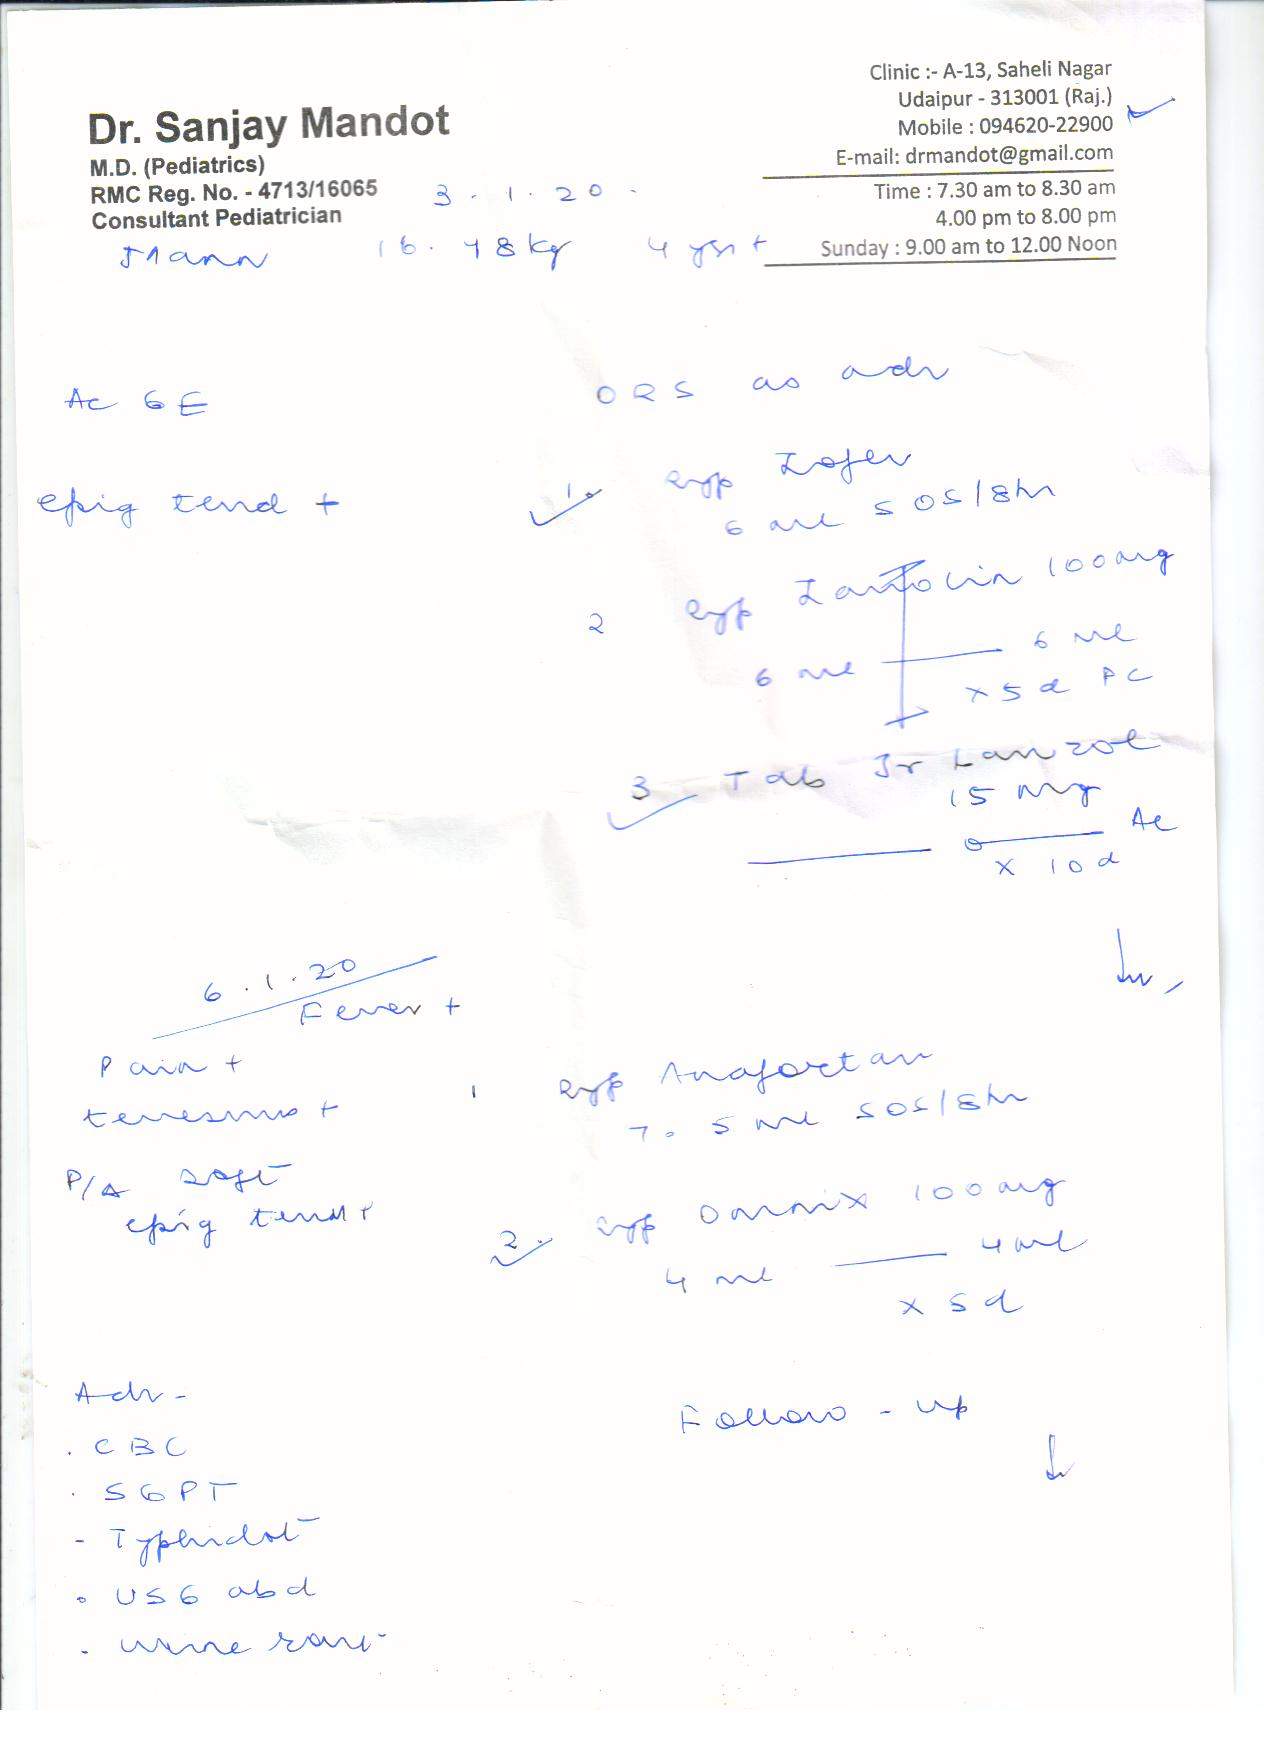 Dr. Sanjay Mandot
M.D. (Pediatrics)
RMC Reg. No. - 4713/16065
Consultant Pediatrician
Clinic :- A-13, Saheli Nagar
Udaipur - 313001 (Raj.)
Mobile : 094620-22900
E-mail: drmandot@gmail.com
Time : 7.30 am to 8.30 am
4.00 pm to 8.00 pm
Sunday : 9.00 am to 12.00 Noon
3.1.20.
16.48kg 4 yr +
Ac GE
epig tend +
ORS as adv
1. syp Zofer
6 ml SOS/8hr
2 syp 100mg
6 ml 6 ml
x 5 d PC
3 Tab Jr Lanzol
15 mg
Ac
x 10 d
6.1.20
Fever +
Pain +
tenesmus +
P/A soft
epig tend +
1 syp Anafortan
7.5 ml SOS/8hr
2. syp Omnix 100mg
4 ml 4 ml
x 5 d
Adv -
. CBC
. SGPT
- Typhidot
. USG abd
. urine
Follow - up